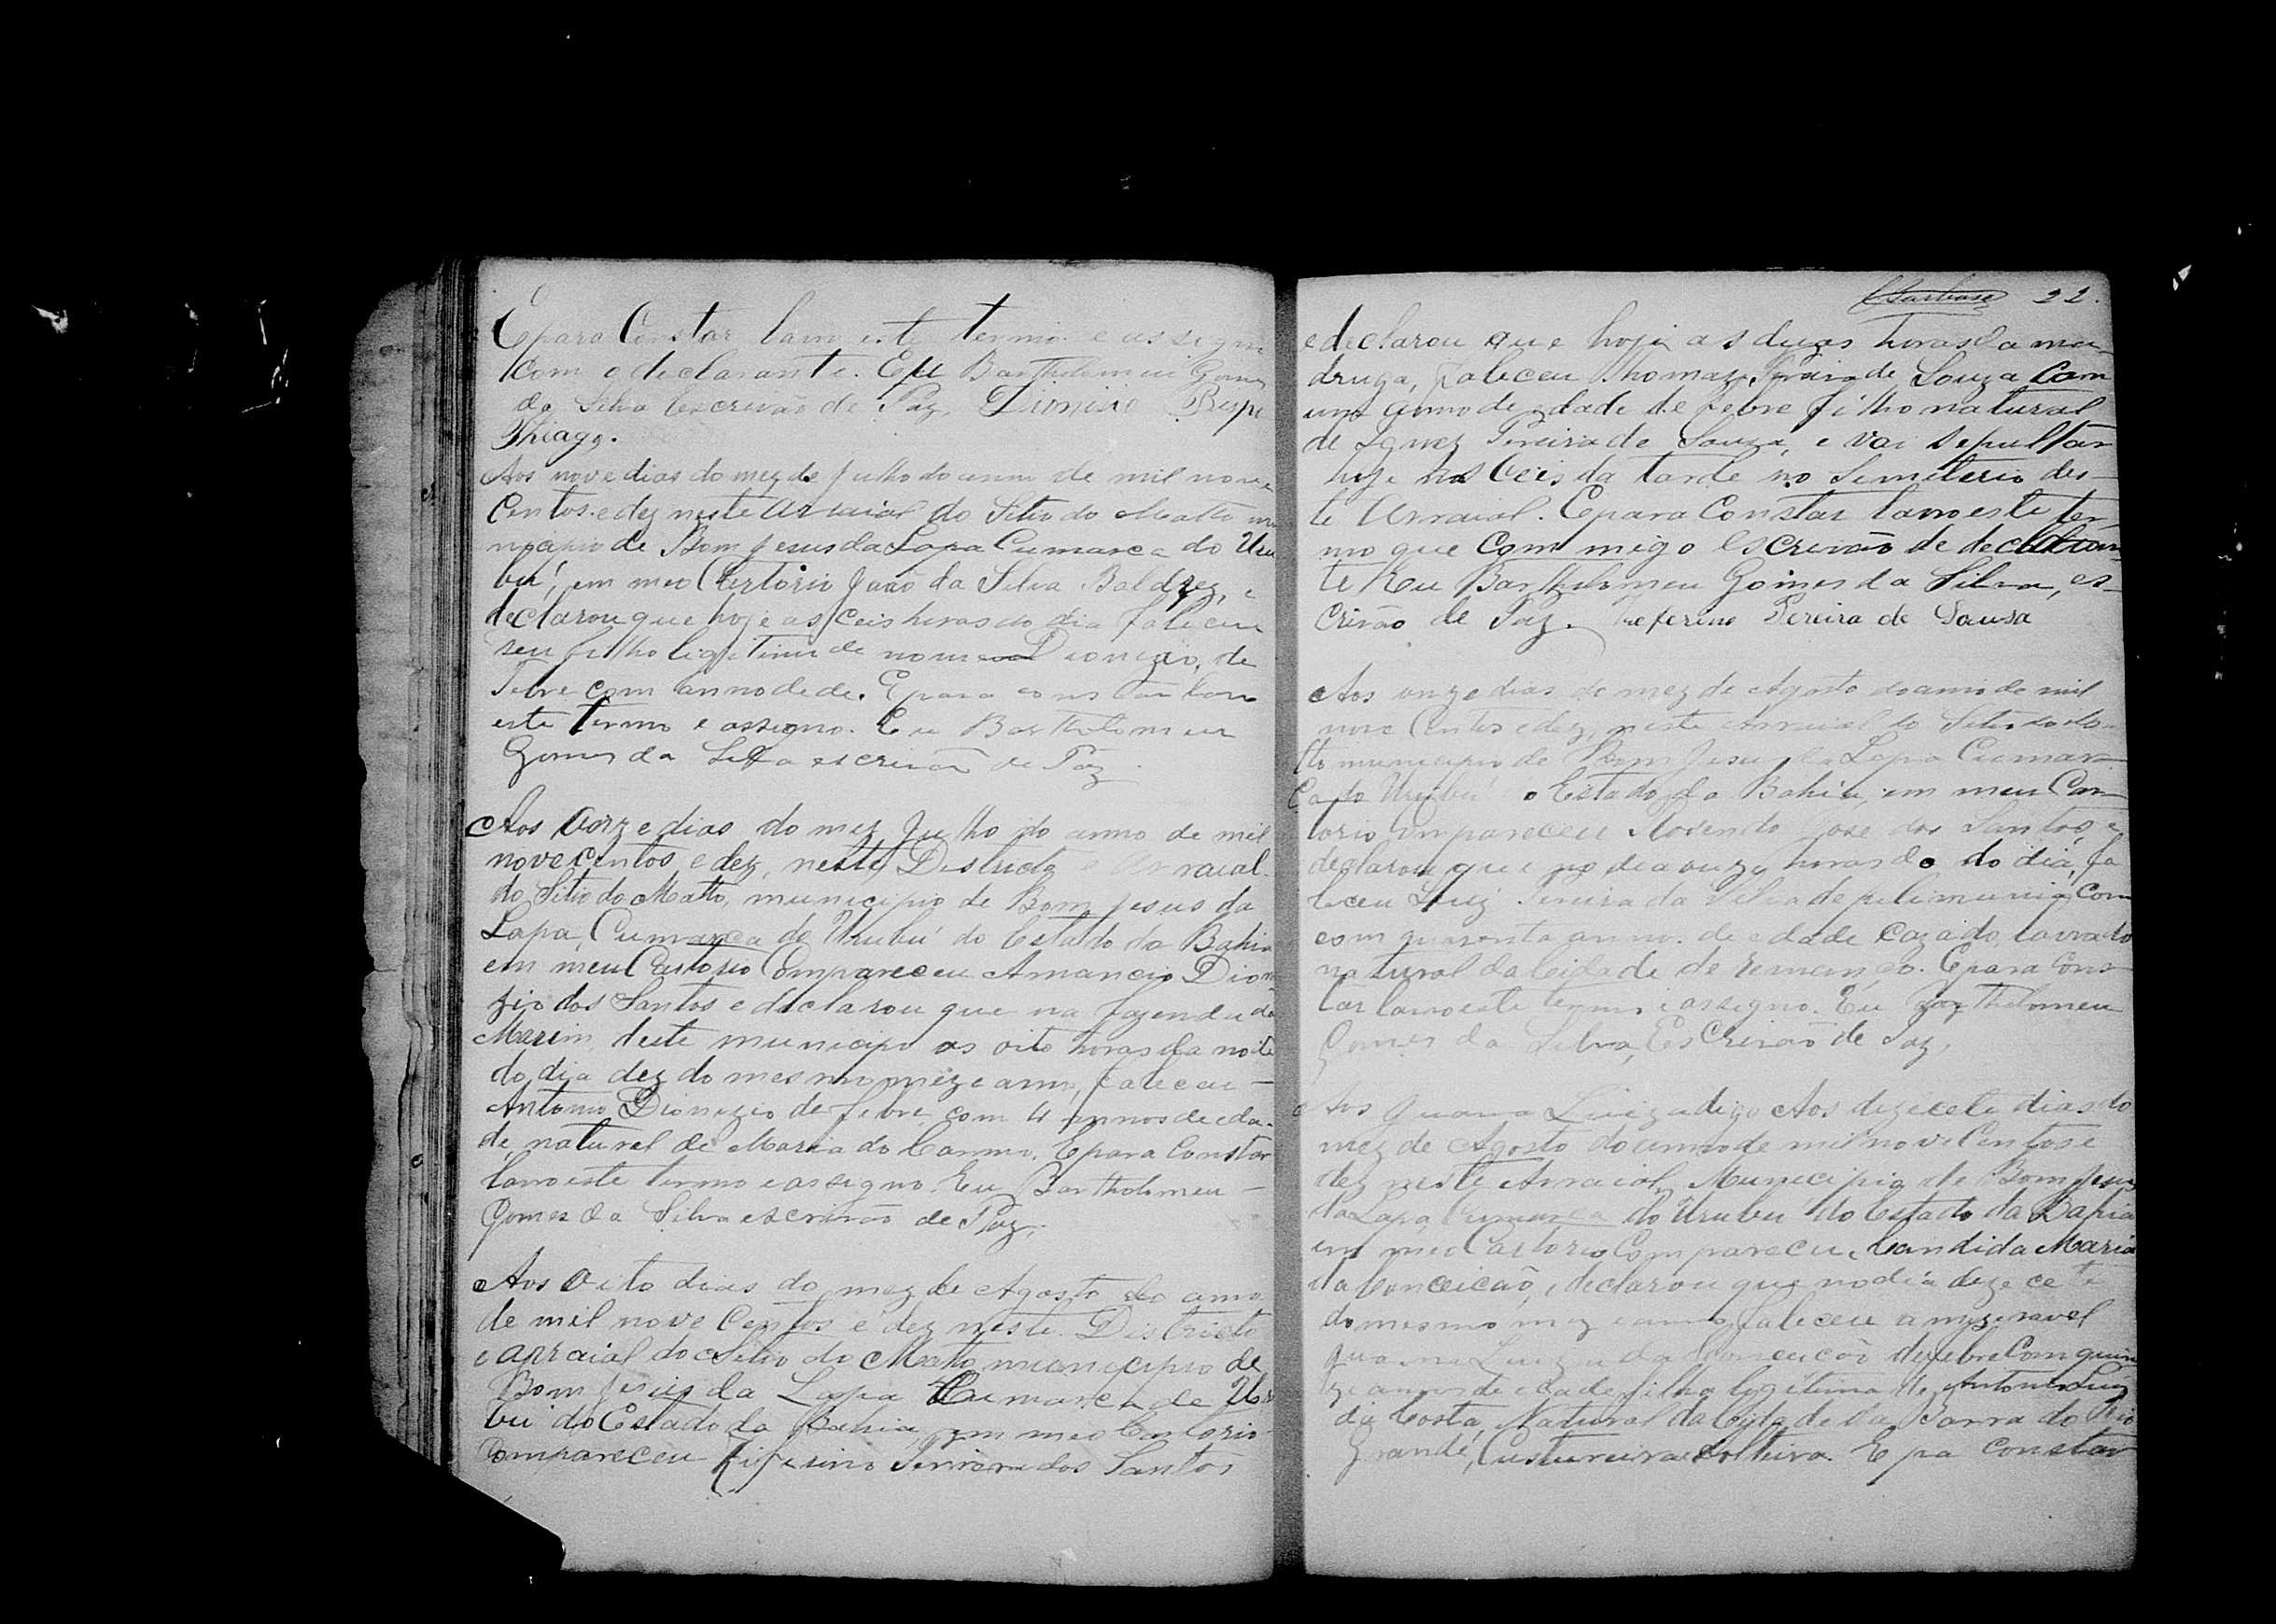 E para Constar lavro este termo e assigno
com o declarante. Eu Bartholomeu Gomes
da Silva Escrivão de Paz. Dionisio Bispo
Thiago.
Aos nove dias do mez de Julho do anno de mil nove
Centos e dez neste Arraial do Sitio do Matto mu
nicipio de Bom Jesus da Lapa Cumarca do Uru
bú, em meo Cartorio João da Silva Baldrez, e
declarou que hoje as Ceis horas do dia faleceu
seu filho legitimo de nome Dionezio, de
Febre com anno dede. E para constar lavro
este termo e assigno. Eu Bartholomeu
Gomes da Silva escrivão de Paz
Aos onze dias do mez Julho do anno de mil
nove centos e dez, neste Destricto e Arraial
do Sitio do Matto, municipio de Bom Jesus da
Lapa, Cumarca de Urubú do Estado da Bahia
em meu Cartorio Compareceu Amancio Dion
zio dos Santos e declarou que na fazenda do
Marim, deste municipio as oito horas da noite
do dia dez do mesmo mez e anno, faleceu —
Antonio Dionezio de febre com 4 annos de eda-
de, natural de Maria do Carmo. E para Constar
lavro este termo e assigno. Eu Bartholomeu —
Gomes da Silva escrivão de Paz.
Aos Oito dias do mez de Agosto do anno
de mil nove Centos e dez neste Districto
e arraial do Sitio do Matto municipio de
Bom Jesus da Lapa Cumarca de Uru
bú do Estado da Bahia em meo Cartorio
Compareceu Zifirino Pereira dos Santos
22.
e declarou que hoje as duas horas da ma
druga, faleceu Thomaz Pereira de Souza Com
um anno de edade de febre filho natural
de Ignez Pereira de Souza, e vai sepultar
hoje as Ceis da tarde no Semiterio des-
te Arraial. E para Constar lavro este ter
mo que Com migo escrivão de declaran
te Eu Bartholomeu Gomes da Silva, es-
crivão de Paz. Zeferino Pereira de Sousa
Aos onze dias do mez de Agosto do anno de mil
nove Centos e dez, neste Arraial do Sitio do Ma
tto municipio de Bom Jesus da Lapa Cumar
Ca do Urubú o Estado da Bahia, em meu Car
torio Compareceu Rosendo Jose dos Santos, e
declarou que no dia onze horas do do dia, fa
leceu Luiz Pereira da Silva de Com
com quarenta anno. de edade Cazado, lavrado
natural da Cidade de Remanço. E para Cons
tar lavro este termo e assigno. Eu Bartholomeu
Gomes da Silva, Escrivão de Paz,
Aos Luiza digo Aos dezecete dias do
mez de Agosto do anno de mil nove Centos e
dez neste Arraial, Municipio de Bom Jesus
da Lapa, Cumarca do Urubú do Estado da Bahia
em meo Cartorio Compareceu, Candida Maria
da Conceicão, e declarou que no dia dezecete
do mesmo mez e anno, faleceu a mizeravel
Luiza da Conceicão de febre Com quin
ze annos de edade filha legitima de Antonio Luiz
da Costa, Natural da Cidade da Barra do Rio
Grande, Custureira Solteira. E pa Constar